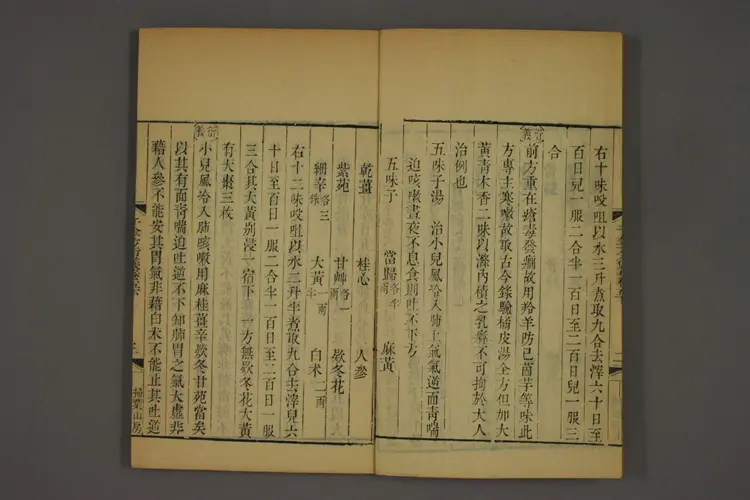 右十味㕮咀以水三升煮取九合去滓六十日至
百日兒一服二合半一百日至二百日兒一服三
合
衍義
前方重在瘡毒發癇故用羚羊防己茵芋等味此
方專主寒嗽故取古今錄驗橘皮湯全方但加大
黃青木香二味以滌內積之乳癖不可拘於大人
治例也
五味子湯 治小兒風冷入肺上氣氣逆而靑喘
迫咳嗽晝夜不息食則吐不下方
五味子 當歸各半兩 麻黃
乾薑 桂心 人參
紫菀 甘艸各一兩 欵冬花
細辛各三銖 大黃一兩半 白米二兩
右十二味㕮咀以水三升半煮取九合去滓兒六
十日至百日一服二合半一百日至二百日一服
三合其大黃別浸一宿下 一方無欵冬花大黃
有大棗三枚
衍義
小兒風冷入肺咳嗽用麻桂薑辛欵冬甘菀當矣
以其有面靑喘迫吐逆不下知肺胃之氣大虛非
藉人參不能安其胃氣非藉白米不能止其吐逆
三
掃葉山房